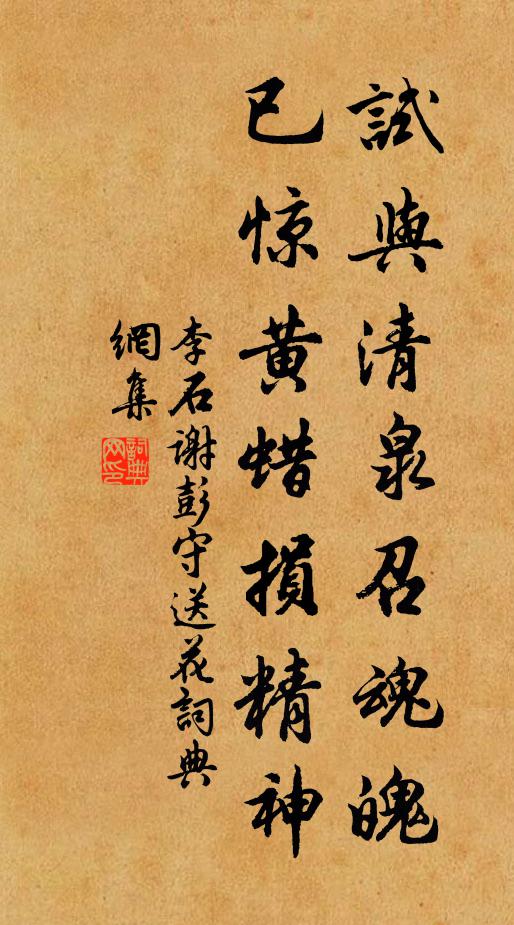 試與清泉召魂魄
已惊黄蜡損精神
李石谢彭守送花詞典
網集
詞典
网印